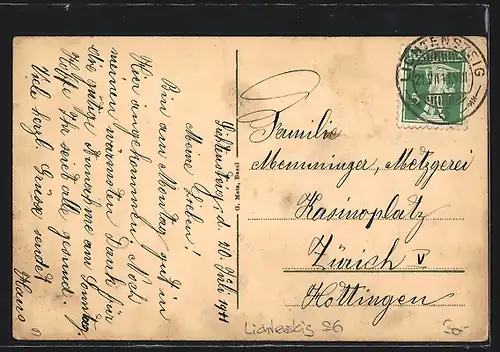 Lichtensteig, d. 20. Feb. 1911
Meine Lieben!
Bin am Montag gut in
hier angekommen. Noch
meinen wärmsten Dank für
die gütige Annahme am Sonntag.
Hoffe Ihr seied alle gesund.
Viele herzl. Grüsse sendet
Hans
LICHTENSTEIG
Familie
Memminger, Metzgerei
Kasinoplatz
Zürich V
Hottingen
Lichtensteig SG